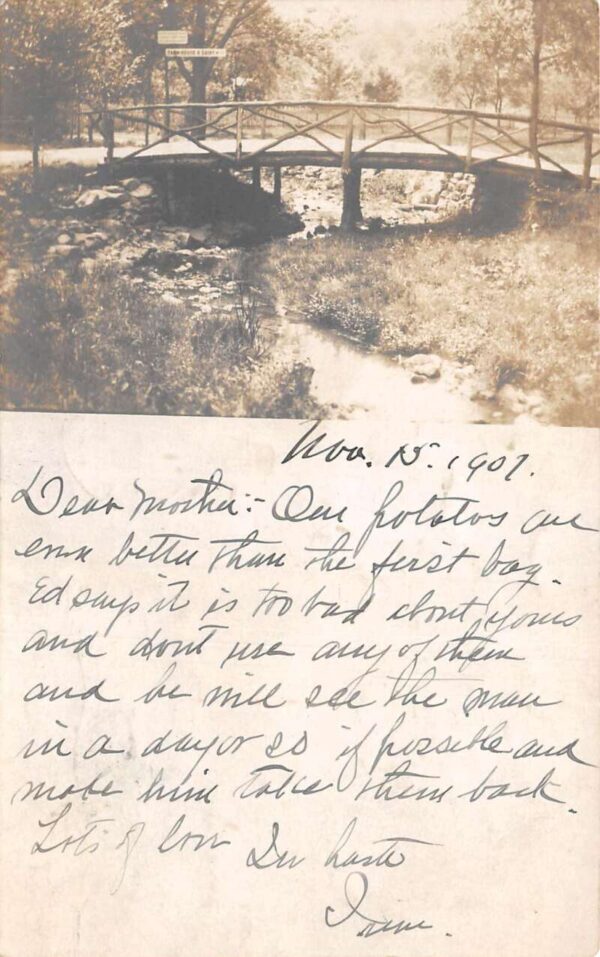 FARM HOUSE & DAIRY
Nov. 15. 1907.
Dear Mother:- Our potatoes are
even better than the first bag.
Ed says it is too bad about yours
and dont use any of them
and he will see the man
in a day or so if possible and
make him take them back.
Lots of love In haste
Irene.